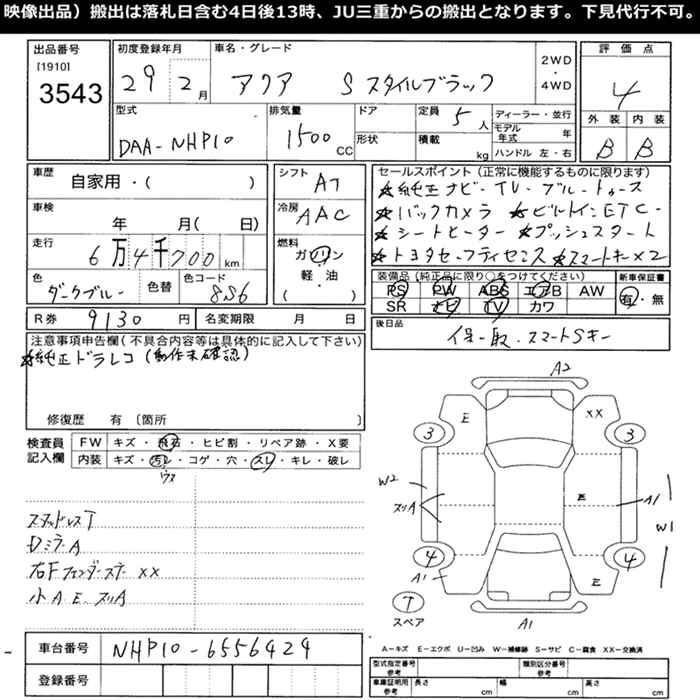 映像出品）搬出は落札日含む4日後13時、JU三重からの搬出となります。下見代行不可。
出品番号 [1910] 3543
初度登録年月 29 2月
車名・グレード アクア S スタイルブラック
2WD・4WD
評価点 4
外装 内装
B B
型式 DAA-NHP10
排気量 1500 CC
ドア
形状
定員 5人
積載 kg
ディーラー・並行
モデル年式 年
ハンドル 左・右
車歴 自家用・( )
車検 年 月( 日)
走行 6万4千700km
色 ダークブルー 色替 色コード 8S6
シフト AT
冷房 AAC
燃料 ガソリン
軽・油
( )
セールスポイント（正常に機能するものに限ります）
★純正ナビ-TV-ブルートゥース
★バックカメラ ★ビルトインETC-
★シートヒーター★プッシュスタート
★トヨタセーフティセンス ★スマートキー×2
装備品（純正品に限り○をつけてください）
PS PW ABS エアB AW
SR ナビ TV カワ
新車保証書
有・無
R券 9130円 名変期限 月 日
後日品 保-取.スマートSキー
注意事項申告欄（不具合内容等は具体的に記入して下さい）
★純正ドラレコ（動作未確認）
修復歴 有 〔箇所
検査員記入欄
FW キズ・飛石・ヒビ割・リペア跡・X要
内装 キズ・汚レ・コゲ・穴・スレ・キレ・破レ
ウス
スタッドレスT
DミラーA
右Fフェンダーステー XX
小A.E.スリA
A2
E XX
3 3
W2
スリA
E
A1
W1
4 4
A1
E
T
スペア
A1
A-キズ E-エクボ U-凹み W-補修跡 S-サビ C-腐食 XX-交換済
車台番号 NHP10-6556424
登録番号
型式指定番号 参考
類別区分番号 参考
車庫証明用 参考 長さ cm 幅 cm 高さ cm